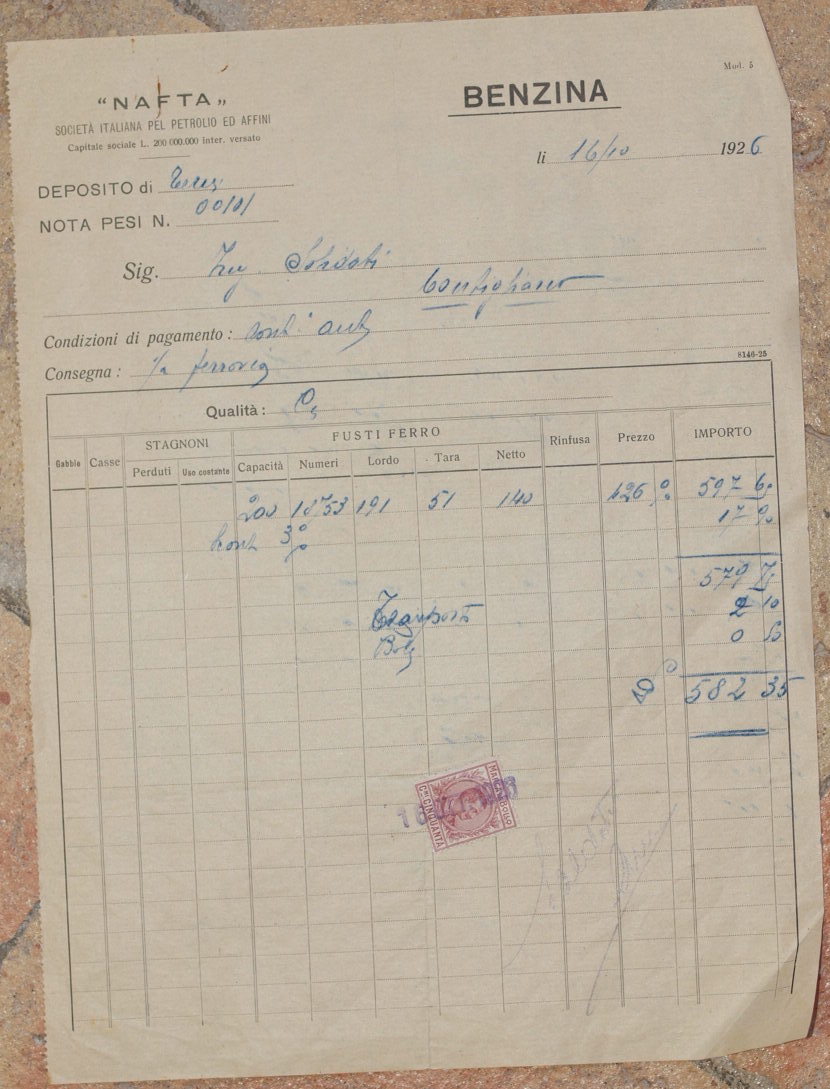 Mod. 5
"NAFTA„
SOCIETÀ ITALIANA PEL PETROLIO ED AFFINI
Capitale sociale L. 200 000.000 inter. versato
BENZINA
li 16/10 1926
DEPOSITO di
NOTA PESI N.
Sig. Ing. Soldati
Condizioni di pagamento :
Consegna : ferrovia
8146-25
Qualità :
Gabbie Casse STAGNONI FUSTI FERRO Rinfusa Prezzo IMPORTO
Perduti Uso costante Capacità Numeri Lordo Tara Netto
200 18753 191 51 140 426 597 60
Scont 3 % 17 90
579
Trasporto 2 10
0
582 35
MARCA DA BOLLO
Cmi CINQUANTA